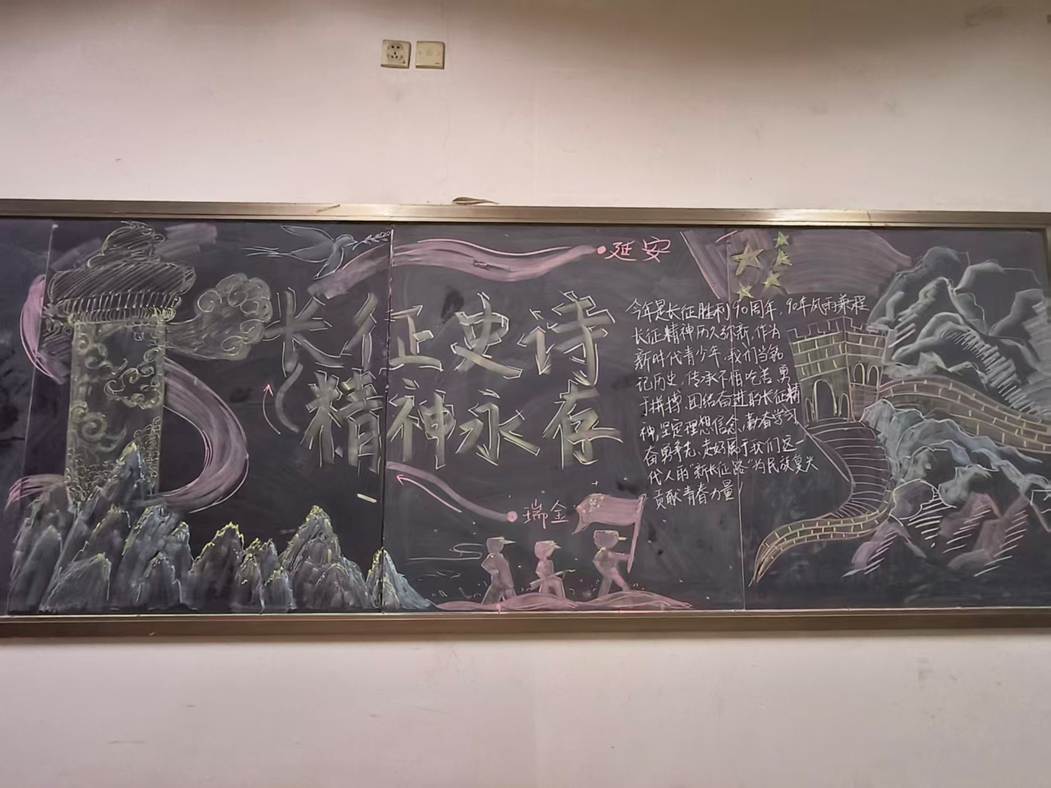 延安
长征史诗
精神永存
瑞金
今年是长征胜利90周年，90年风雨兼程
长征精神历久弥新，作为
新时代青少年，我们当铭
记历史，传承不怕吃苦，勇
于拼搏，团结奋进的长征精
神，坚定理想信念，勤奋学习
奋勇争先，走好属于我们这一
代人的“新长征路”为民族复兴
贡献青春力量！